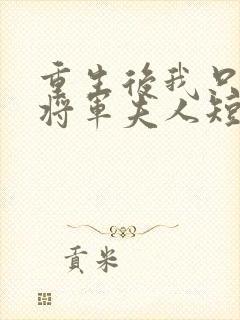 重生後我只
將軍夫人短
貢米